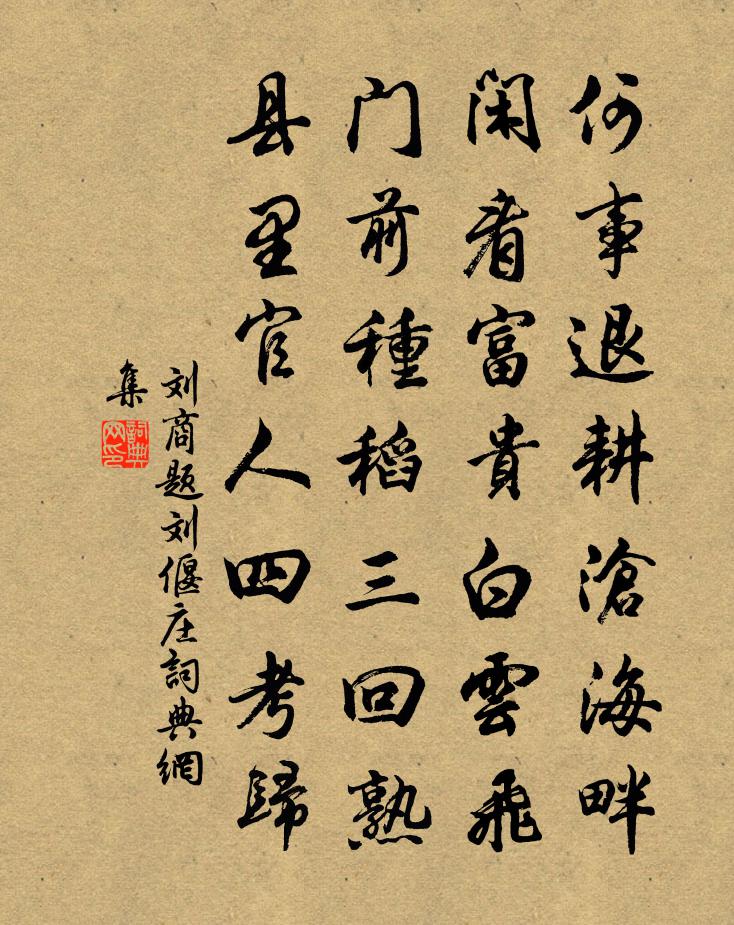 何事退耕滄海畔
闲看富貴白雲飛
门前種稻三回熟
县里官人四考歸
刘商题刘偃庄詞典網
集
詞典
网印